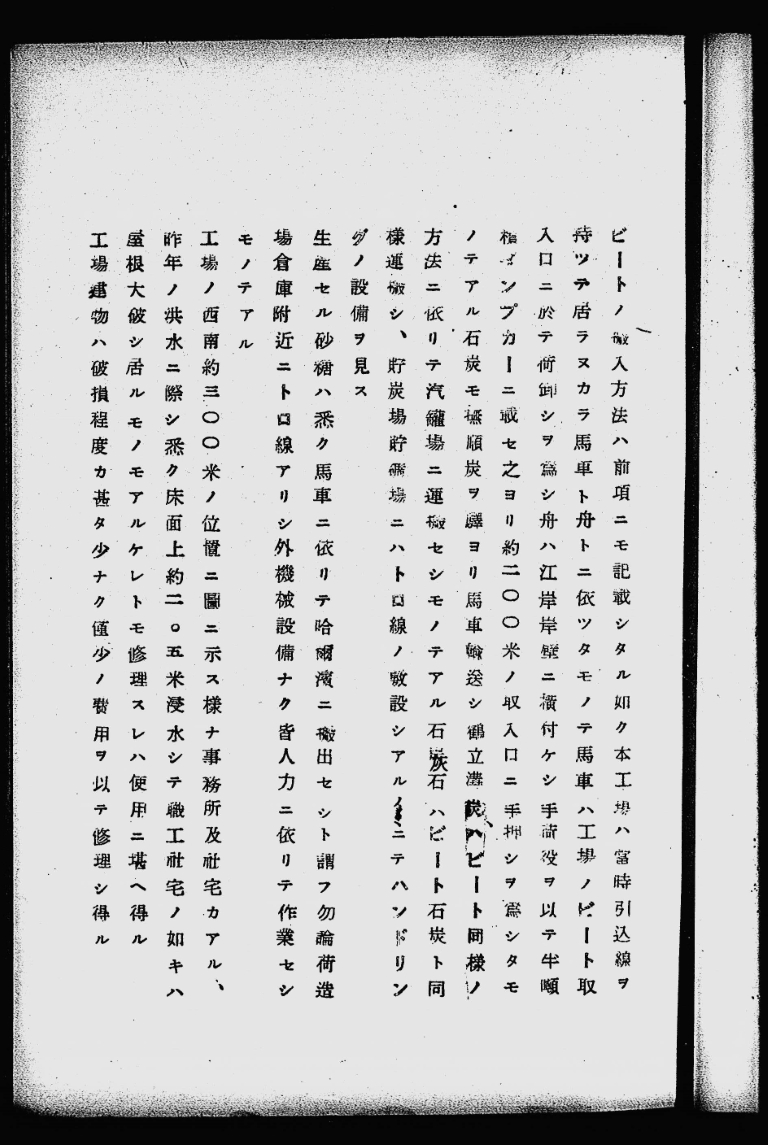 ビートノ搬入方法ハ前項ニモ記載シタル如ク本工場ハ當時引込線ヲ
持ツテ居ラヌカラ馬車ト舟トニ依ツタモノテ馬車ハ工場ノビート取
入口ニ於テ荷卸シヲ爲シ舟ハ江岸岸壁ニ横付ケシ手荷役ヲ以テ半噸
積インプカーニ載セ之ヨリ約二〇〇米ノ取入口ニ手押シヲ爲シタモ
ノテアル石炭モ撫順炭ヲ驛ヨリ馬車輸送シ鶴立濇炭ハビート同様ノ
方法ニ依リテ汽罐場ニ運搬セシモノテアル石灰石ハビート石炭ト同
様運搬シ、貯炭場貯礦場ニハトロ線ノ敷設シアルノミニテハンドリン
グノ設備ヲ見ス
生産セル砂糖ハ悉ク馬車ニ依リテ哈爾濱ニ搬出セシト謂フ勿論荷造
場倉庫附近ニトロ線アリシ外機械設備ナク皆人力ニ依リテ作業セシ
モノテアル
工場ノ西南約三〇〇米ノ位置ニ圖ニ示ス様ナ事務所及社宅カアル、
昨年ノ洪水ニ際シ悉ク床面上約二。五米浸水シテ職工社宅ノ如キハ
屋根大破シ居ルモノモアルケレトモ修理スレハ使用ニ堪ヘ得ル
工場建物ハ破損程度カ甚タ少ナク僅少ノ費用ヲ以テ修理シ得ル